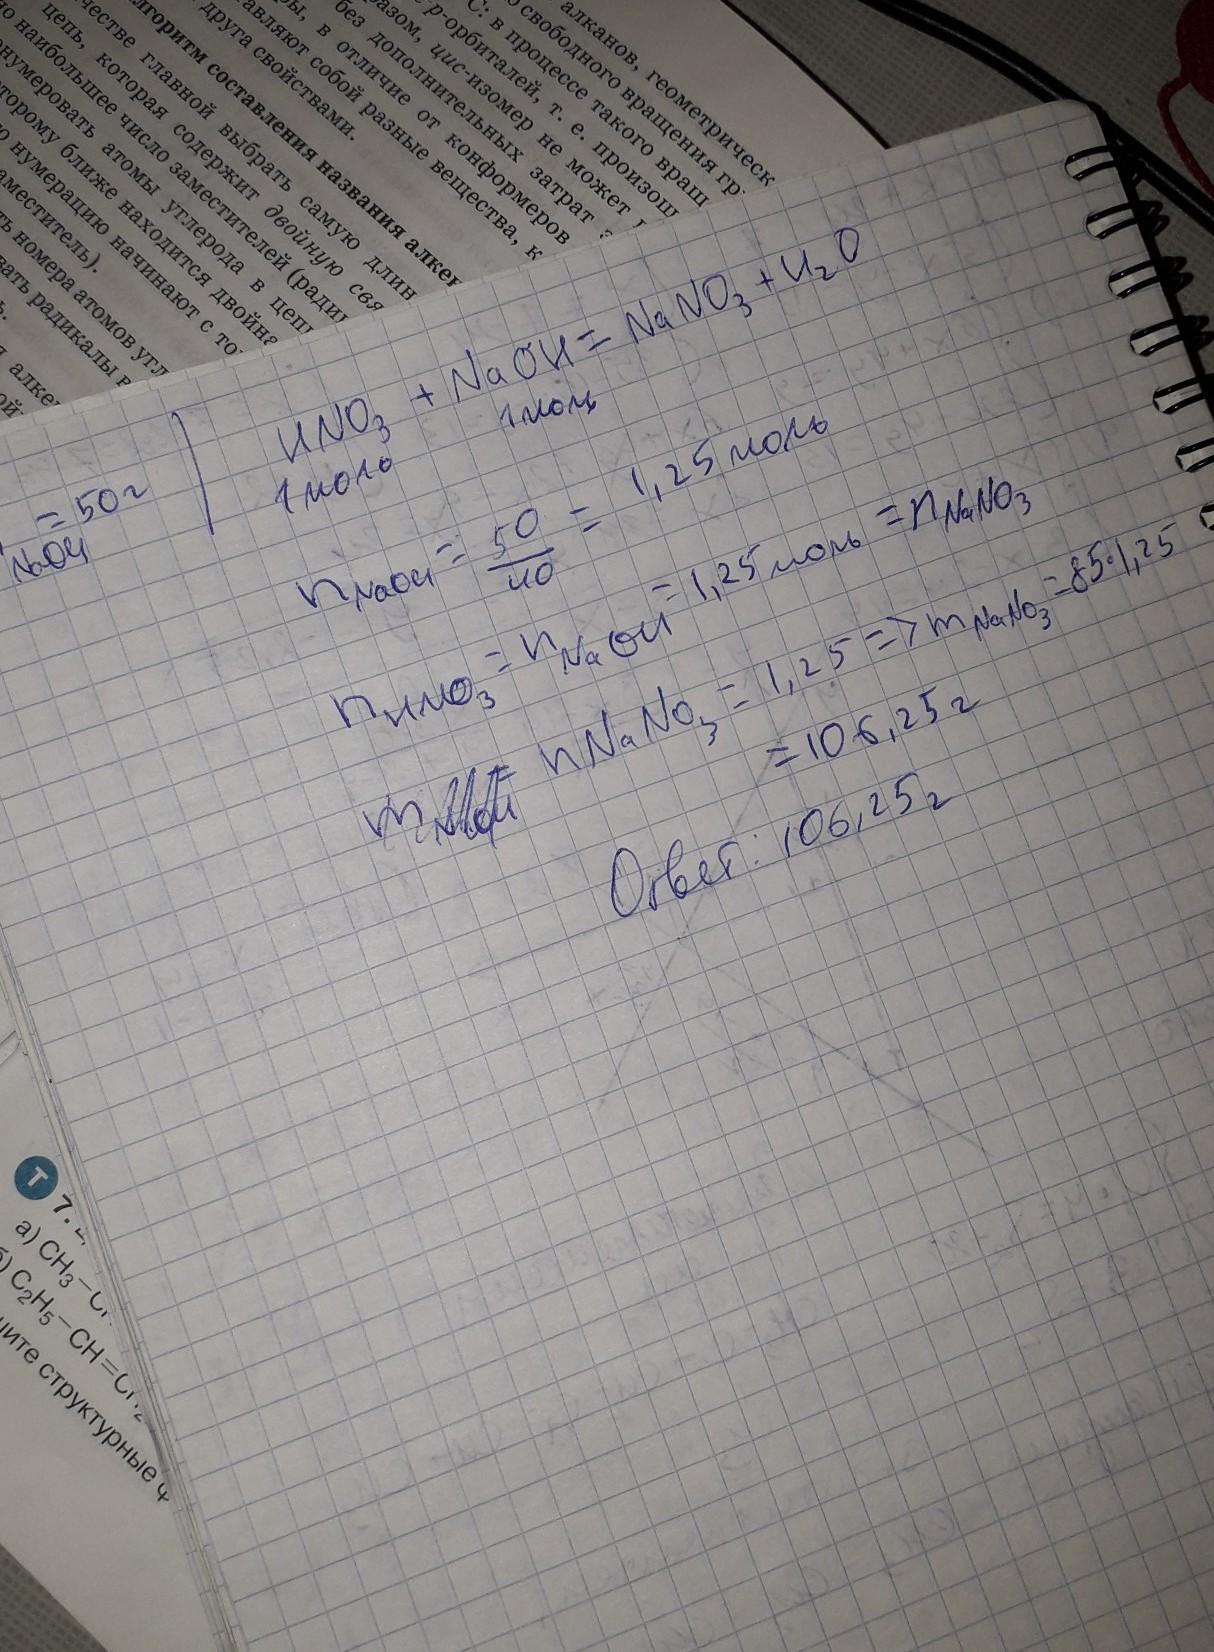 алканов, геометрическ
свободного вращения гр
С: в процессе такого вращ
р-орбиталей, т. е. произош
разом, цис-изомер не может
без дополнительных затрат
ры, в отличие от конформеров
авляют собой разные вещества, к
друга свойствами.
лгоритм составления названия алкен
честве главной выбрать самую длин
цепь, которая содержит двойную свя
наибольшее число заместителей (ради
нумеровать атомы углерода в цепи
торому ближе находится двойна
нумерацию начинают с то
аместитель).
номера атомов угл
вать радикалы в
HNO3 + NaOH = NaNO3 + H2O
1моль 1моль
NaOH = 50г
nNaOH = 50/40 = 1,25 моль
nHNO3 = nNaOH = 1,25 моль = nNaNO3
m nNaNO3 = 1,25 => mNaNO3 = 85·1,25
= 106,25 г
Ответ: 106,25 г
Т 7.
а) CH3–
C2H5–CH=
структурные